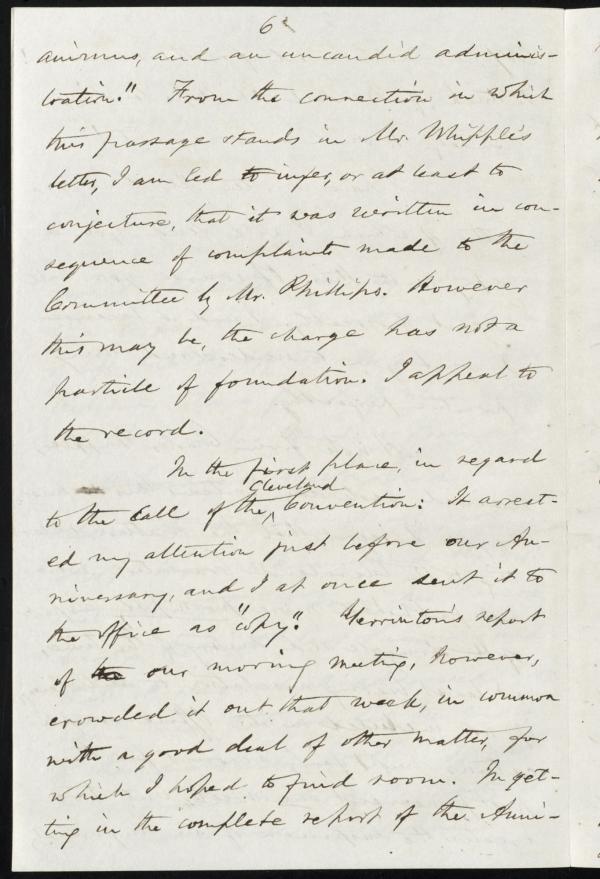 6
animus, and an uncandid adminis-
tration." From the connection in which
this passage stands in Mr. Whipple's
letter, I am led to infer, or at least to
conjecture, that it was written in con-
sequence of complaints made to the
Committee by Mr. Phillips. However
this may be, the charge has not a
particle of foundation. I appeal to
the record.
In the first place, in regard
Cleveland
to the Call of the Convention: It arrest-
ed my attention just before our An-
niversary, and I at once sent it to
the office as "copy." Yerrinton's report
of the our morning meeting, however,
crowded it out that week, in common
with a good deal of other matter, for
which I hoped to find room. In get-
ting in the complete report of the Anni-